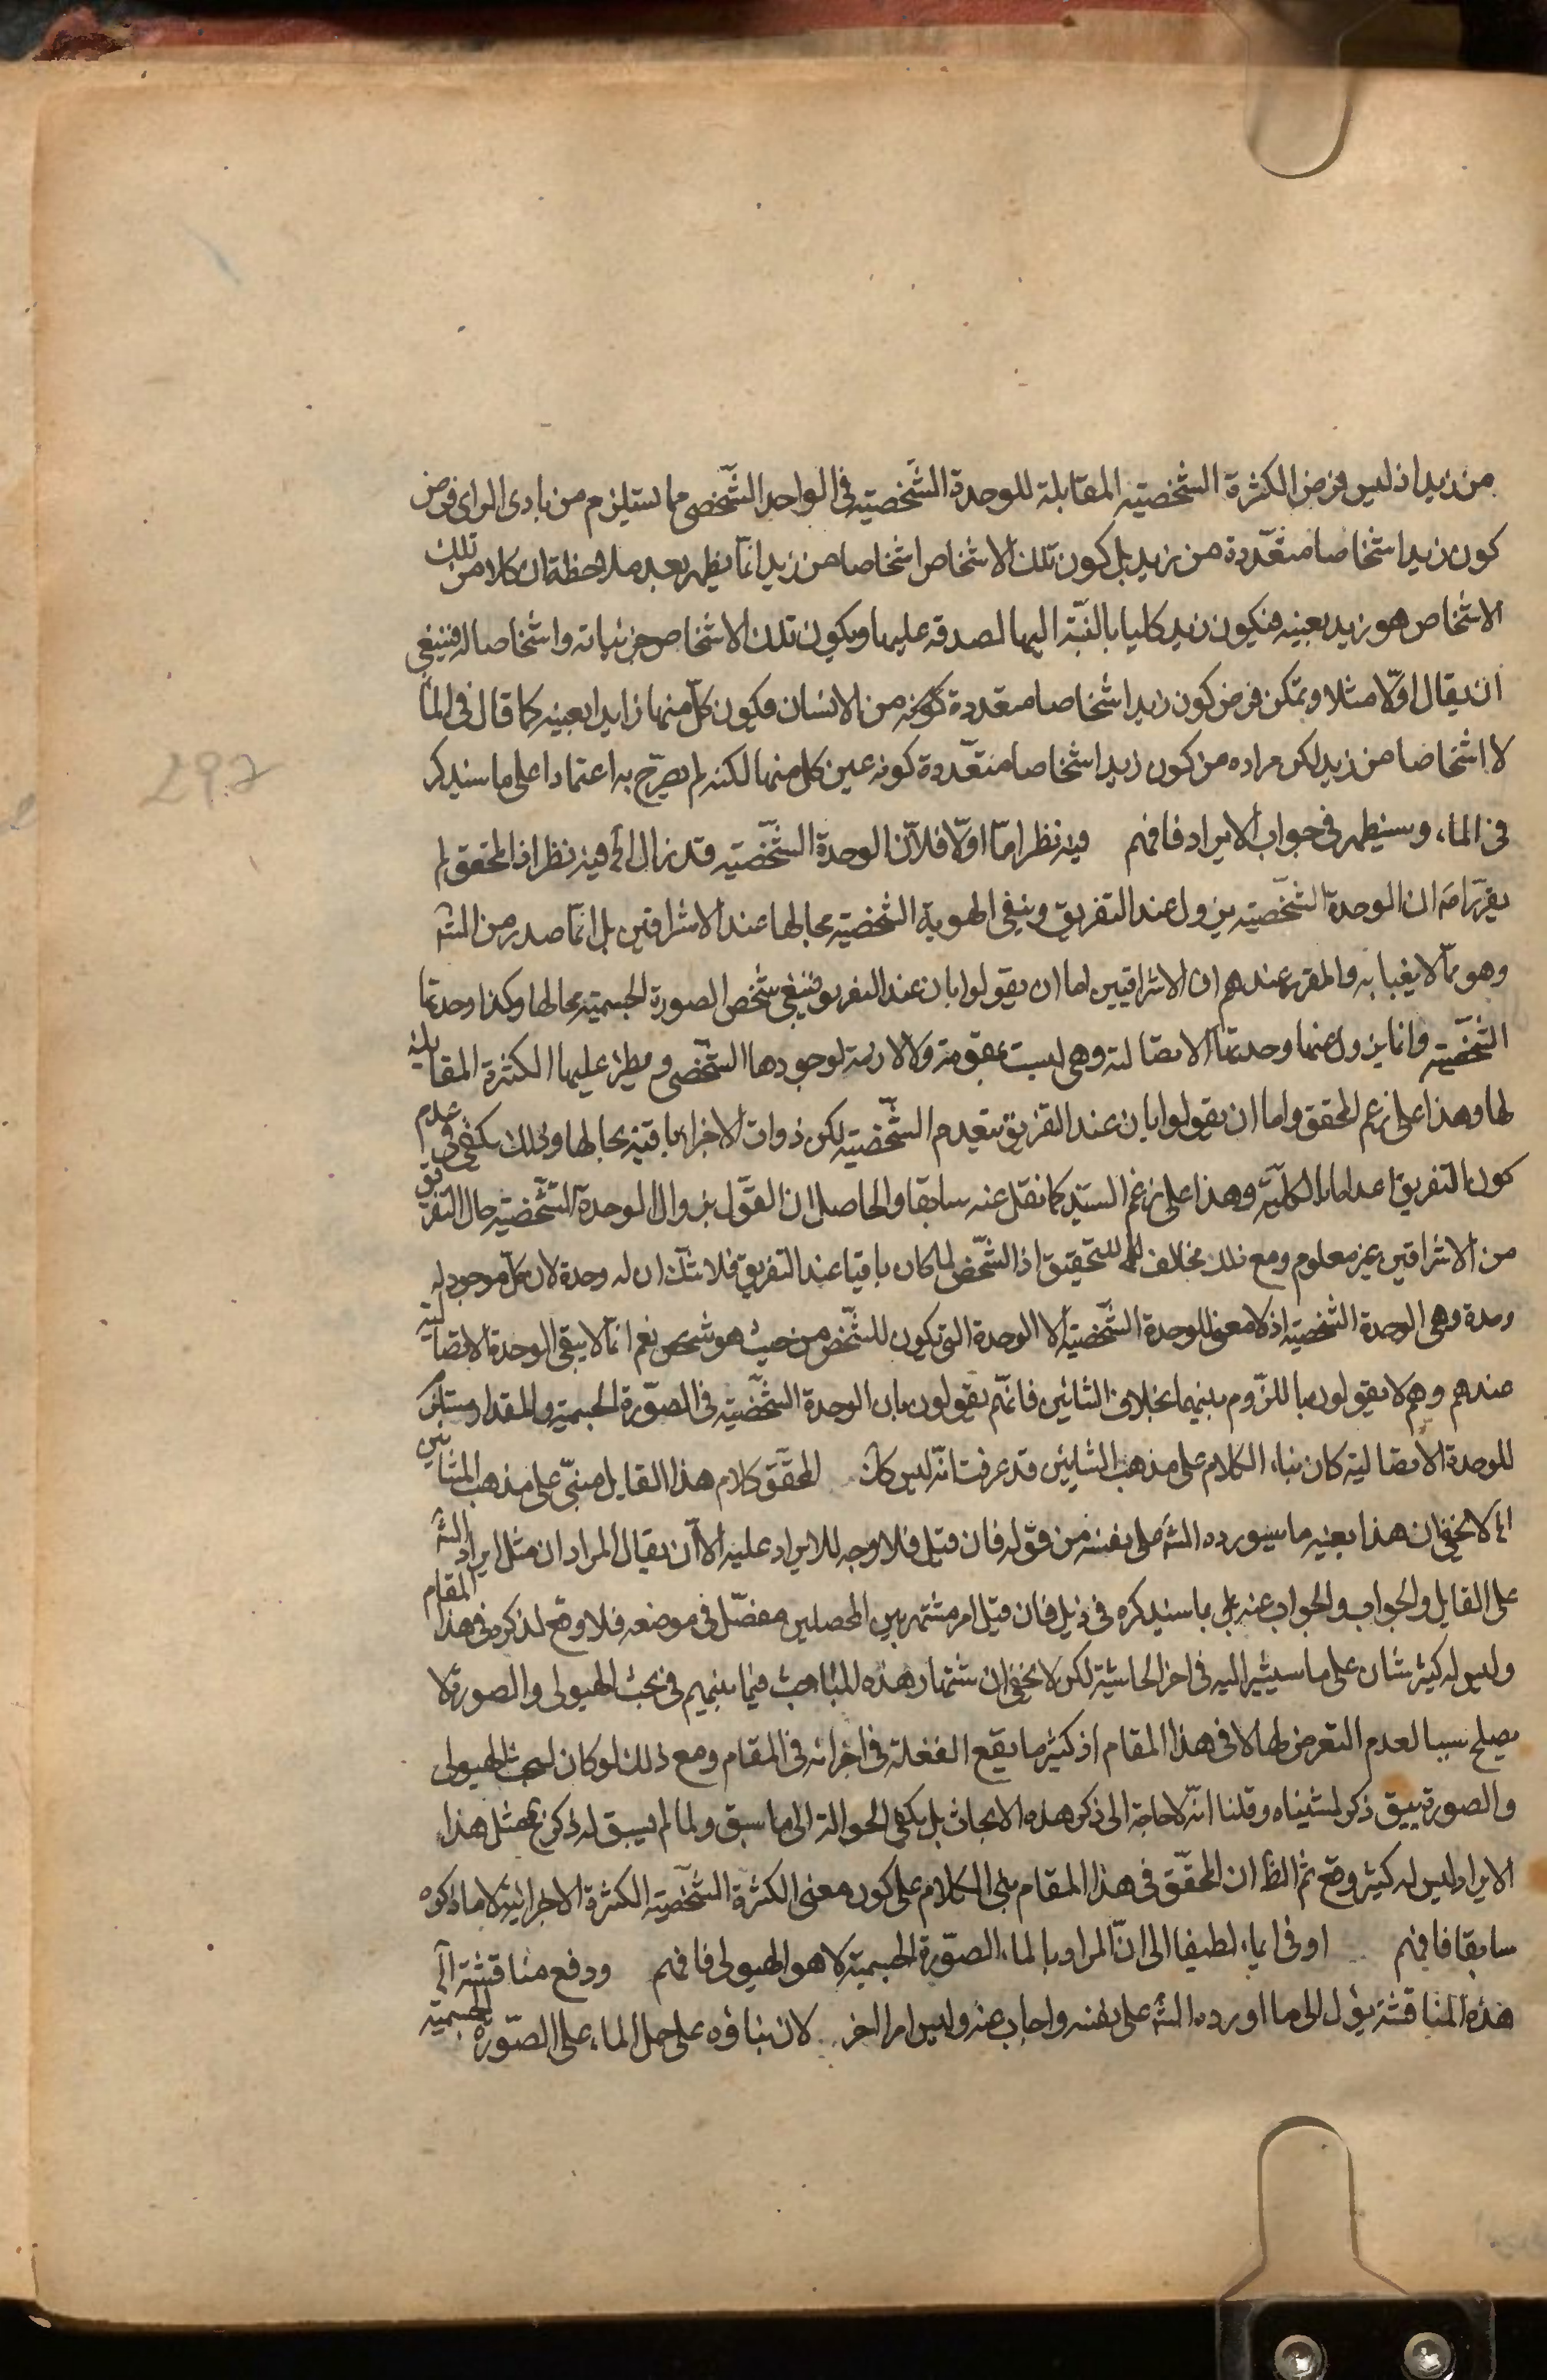 من زيد اذ ليس فرض الكثرة الشخصيته المقابلة للوحدة الشّخصيّة فى الواحد الشّخصى مما يستلزم من بادى الراى فرض
كون زيد اشخاصا متعّددة من زيد بل كون تلك الاشخاص اشخاصا من زيد انّما يظهر بعد ملاحظة ان كلا من تلك
الاشخاص هو زيد بعينه فيكون زيد كليا بالنّسبة اليها لصدقه عليها ويكون تلك الاشخاص جزئياته واشخاصا له فينبغى
ان يقال اولّا مثلا ويمكن فرض كون زيد اشخاصا متعددة كونه من الانسان فيكون كلّ منها زايدا بعينه كما قال فى الماء
لا اشخاصا من زيد لكن مراده من كون زيد اشخاصا متعّددة كونه عين كل منها لكنه لم يصرّح به اعتمادا على ما سيذكر
فى الماء وسيظهر فى جواب الايراد فافهم فيه نظر امّا اولّا فلانّ الوحدة الشّخصيّة قد زال الخ فيه نظر اذ المحقق لم
يقرّر امّه ان الوحدة الشّخصيّة يزول عند التفريق ويبقى الهوية الشّخصيّة بحالها عند الاشراقيين بل انّما صدر من الشه
وهو ممّا لا يعبا به والمقرر عندهم ان الاشراقيين اما ان يقولوا بان عند التفريق يبقى شخص الصورة الجسميّة بحالها وكذا وحدتها
الشّخصيّة وانما يزول عنها وحدتها الاتصّالية وهى ليست بمقومة ولا لازمة لوجودها الشّخصى ويطرء عليها الكثرة المقابلة
لها وهذا على زعم المحقق واما ان يقولوا بان عند التفريق ينعدم الشّخصيّة لكن ذوات الاجزاء باقية بحالها وبذلك يكفى فى عدم
كون التفريق اعداما بالكلّيّة وهذا على زعم السيّد كما نقل عنه سابقا والحاصل ان القول بزوال الوحدة الشّخصيّة حال التفريق
من الاشراقيين غير معلوم ومع ذلك مخالف للتّحقيق اذ الشّخص لما كان باقيا عند التفريق فلا شكّ ان له وحدة لان كلّ موجود له
وحدة وهى الوحدة الشّخصيّة اذ لا معنى للوحدة الشّخصيّة الا الوحدة التى تكون للشّخص من حيث هو شخص نعم انّما لا يبقى الوحدة الاتصالية
عندهم وهم لا يقولون باللزّوم بينهما بخلاف المشائين فانّهم يقولون بان الوحدة الشّخصيّة فى الصّورة الجسميّة والمقدار مستلزم
للوحدة الاتصّالية كان بناء الكلام على مذهب المشايين قد عرفت انّه ليس كلام المحقّق كلام هذا القايل مبنىّ على مذهب المشايين
الخ لا يخفى ان هذا بعينه ما سيورده الشه على نفسه من قوّله فان قيل فلا وجه للايراد عليه الّا ان يقال المراد ان مثل ايراد الشه
على القايل والجواب والجواب عنه بل ما سيذكره فى ذيل فان قيل امر مشتهر بين المحصلين مفصّل فى موضعه فلا وقع لذكره فى هذا المقام
وليس له كثير شان على ما سيشير اليه فى اخر الحاشيّة لكن لا يخفى ان شتهار هذه المباحث فيما بينهم فى بحث الهيولى والصورة لا
يصلح سببا لعدم التعرض لها لا فى هذا المقام اذ كثير ما يقع الغفلة فى اجزائه فى المقام ومع ذلك لو كان لبحث الهيولى
والصورة سبق ذكر لمشيناه وقلنا انّه لا حاجة الى ذكر هذه الابحاث بل يكفى الحوالة الى ما سبق ولما لم يسبق له ذكر فمثل هذا
الايراد ليس له كثير وقع ثم الظ ان المحقّق فى هذا المقام بنى الكلام على كون معنى الكثرة الشّخصيّة الكثرة الاجزائية لا ما ذكره
سابقا فافهم او فى ايماء لطيفا الى انّ المراد بالماء الصّورة الجسميّة لا هو الهيولى فافهم ودفع مناقشته الخ
هذه المناقشة يؤل الى ما اورده الشه على نفسه واجاب عنه وليس امرا اخر لان بناؤه على حمل الماء على الصّورة الجسمية